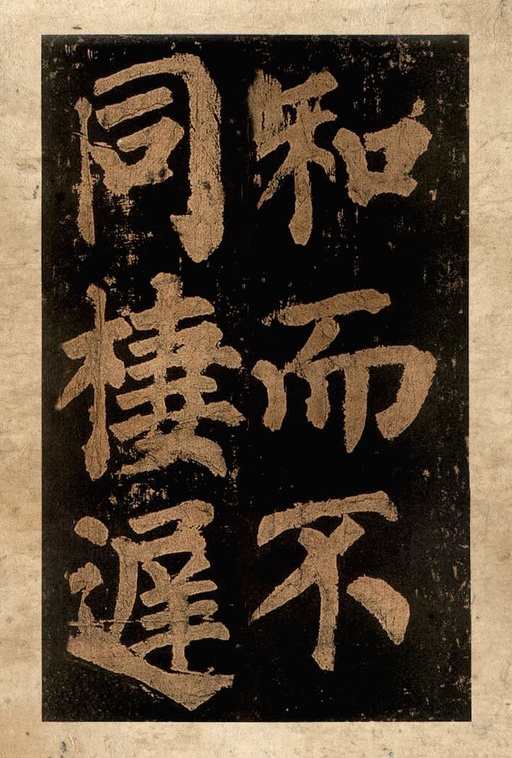 和而不
同棲遲